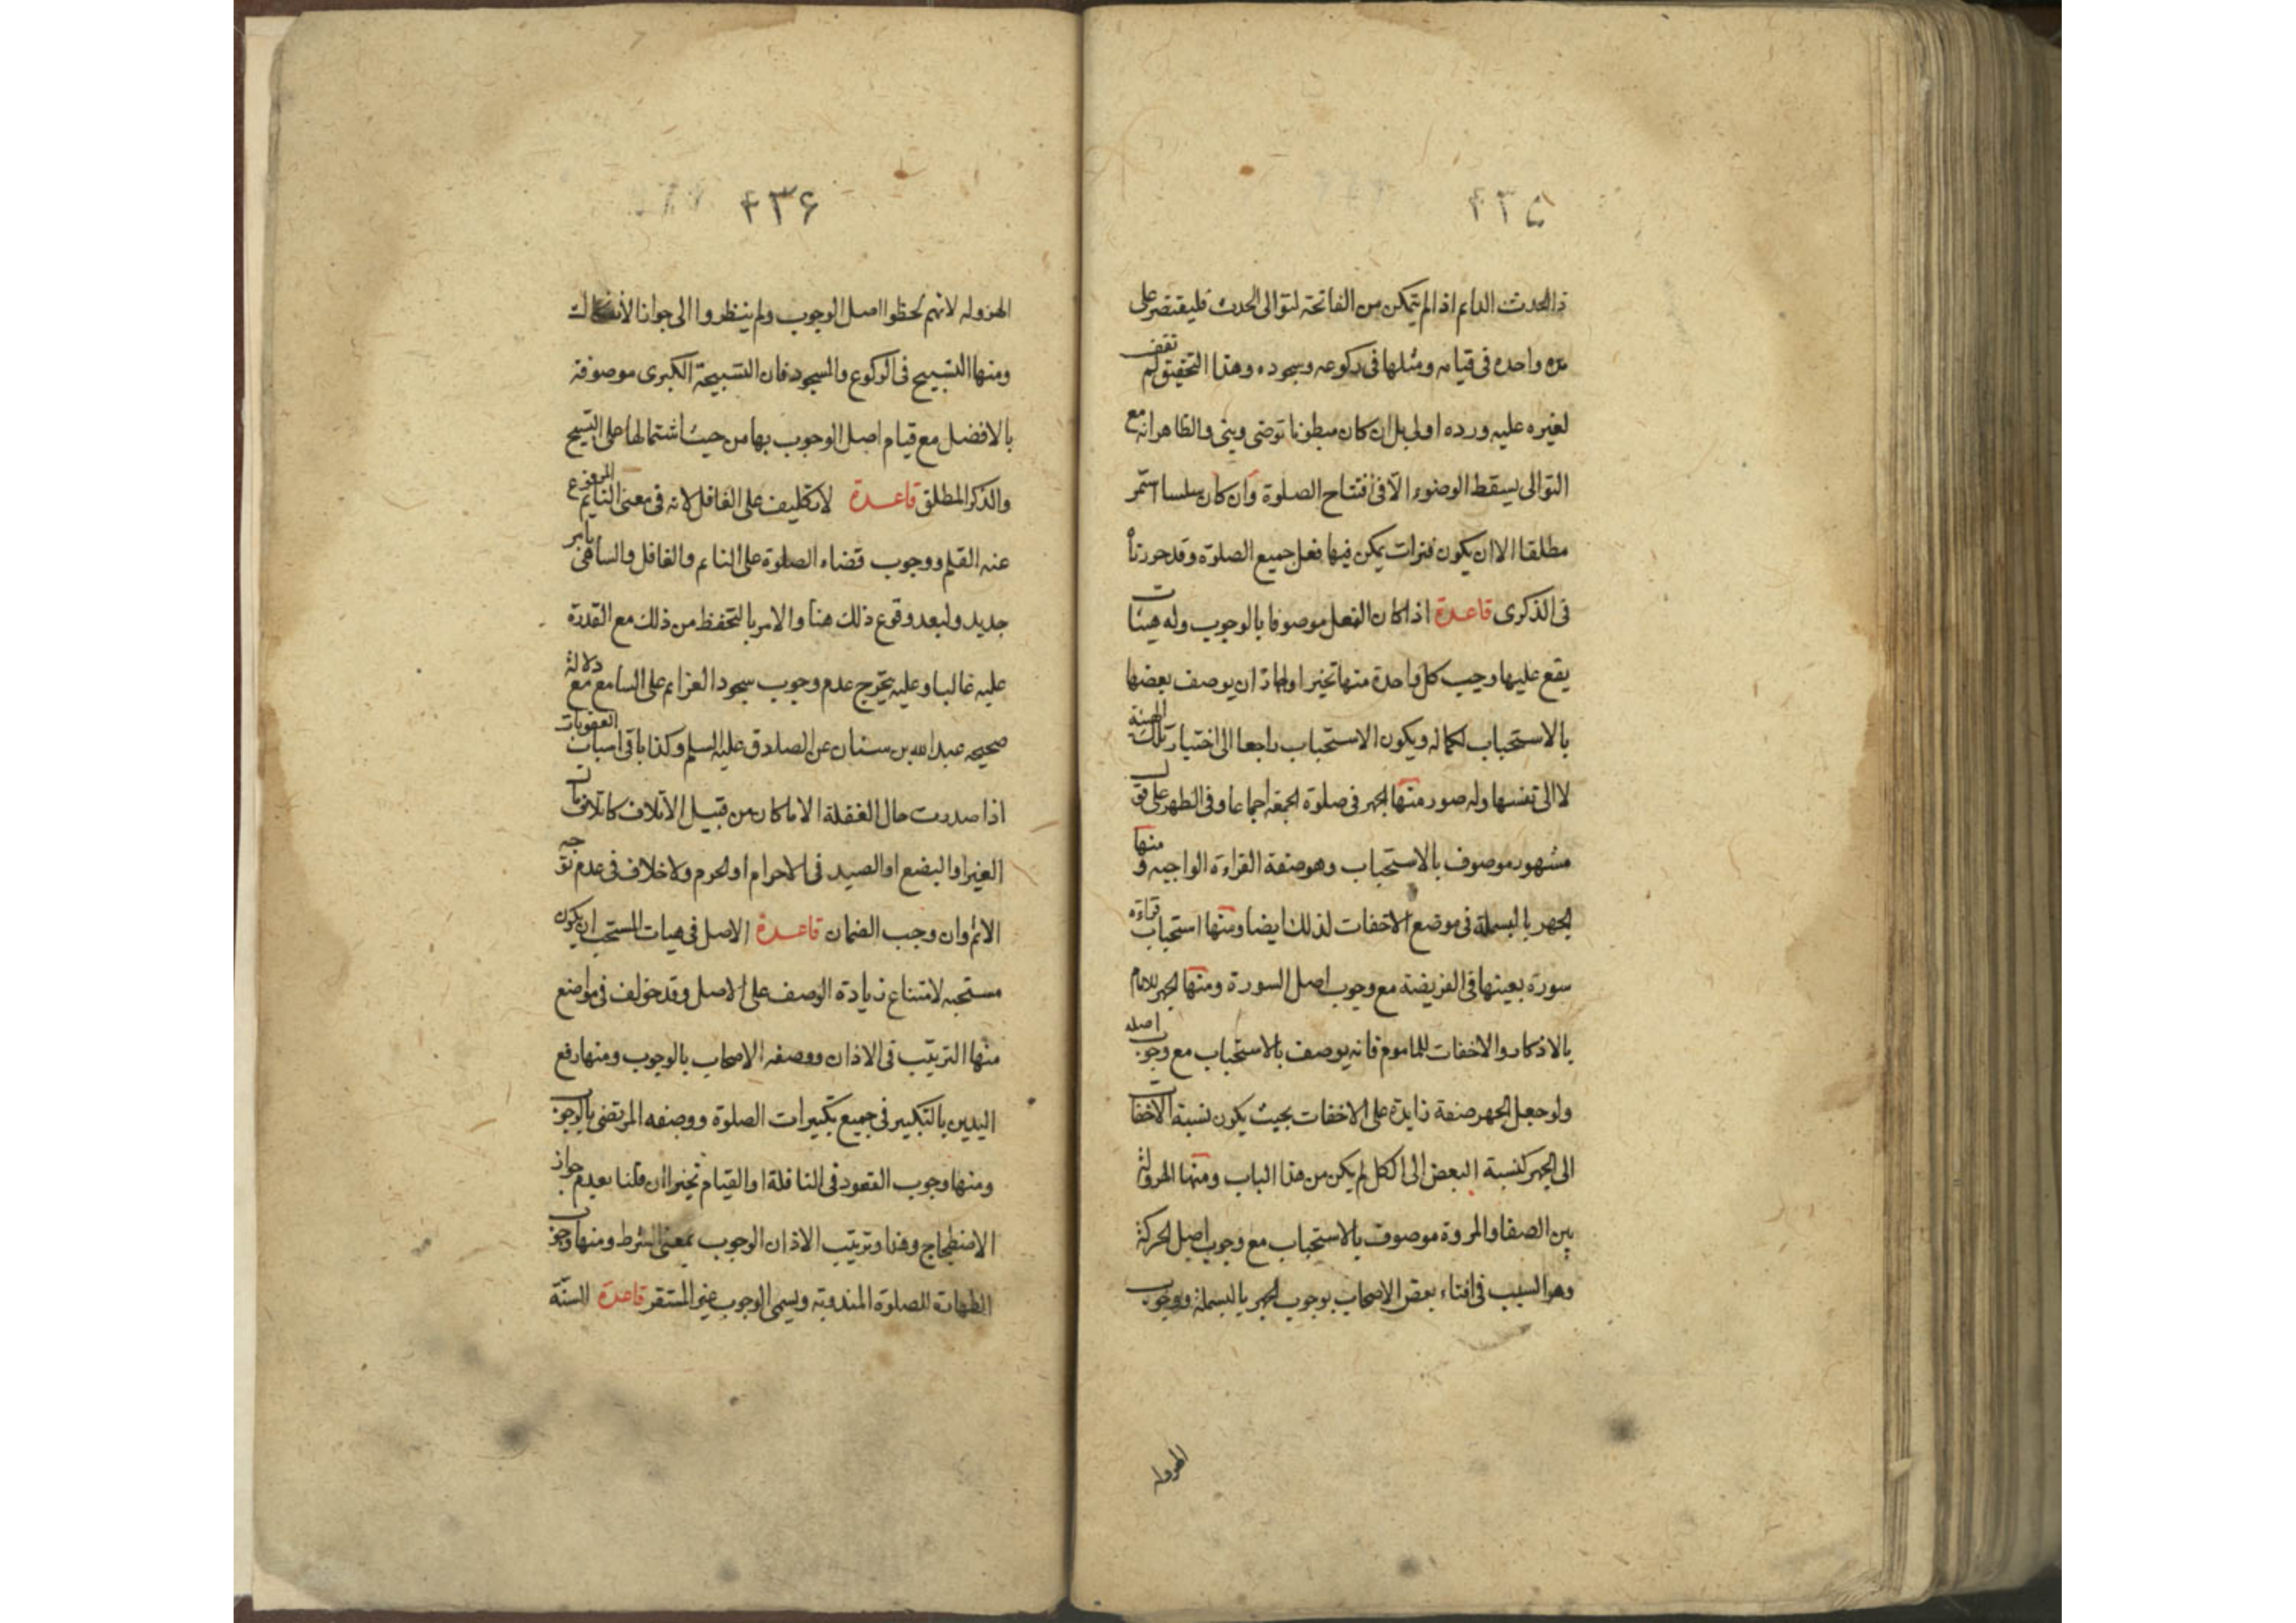 ۴۳۵
ذا الحدث الدايم اذا لم يتمكن من الفاتحة لتوالى الحدث فليقتصر على
مره واحده فى قيامه ومثلها فى ركوعه وسجوده وهذا التحقيق لم نقف
لغيره عليه ورده اولى بل ان كان مبطونا توضى وبنى والظاهر انه مع
التوالى يسقط الوضوء الّا فى افتتاح الصلوة وان كان سلسا استمر
مطلقا الا ان يكون فترات يمكن فيها فعل جميع الصلوة وقد حررناه
فى الذكرى قاعدة اذا كان الفعل موصوفا بالوجوب وله هيئات
يقع عليها وجب كل واحدة منها تخييرا ولهاذا ان يوصف بعضها
بالاستحباب لكماله ويكون الاستحباب راجعا الى اختيار تلك الهيئة
لا الى نفسها وله صور منها الجهر فى صلوة الجمعة اجماعا وفى الظهر على قول
مشهور موصوف بالاستحباب وهو صفة القراءة الواجبه ومنها
الجهر بالبسملة فى موضع الاخفات لذلك ايضا ومنها استحباب قراءة
سورة بعينها فى الفريضة مع وجوب اصل السورة ومنها الجهر للامام
بالاذكار والاخفات للماموم فانه يوصف بالاستحباب مع وجوب اصله
ولو جعل الجهر صفة زايدة على الاخفات بحيث يكون نسبة الاخفات
الى الجهر كنسبة البعض الى الكل لم يكن من هذا الباب ومنها الهرولة
بين الصفا والمروة موصوف بالاستحباب مع وجوب اصل الحركة
وهو السبب فى افتاء بعض الاصحاب بوجوب الجهر بالبسملة ووجوب
الهروله
۴۳۶
الهروله لانهم لحظوا اصل الوجوب ولم ينظروا الى جواز الانفكاك
ومنها التسبيح فى الركوع والسجود فان التسبيحة الكبرى موصوفة
بالافضل مع قيام اصل الوجوب بها من حيث اشتمالها على التسبيح
والذكر المطلق قاعدة لا تكليف على الغافل لانه فى معنى النايم المرفوع
عنه القلم ووجوب قضاء الصلوة على النايم والغافل والساهى بامر
جديد ولبعد وقوع ذلك هنا والامر بالتحفظ من ذلك مع القدرة
عليه غالبا وعليه يتخرج عدم وجوب سجود العزايم على السامع مع دلالة
صحيحه عبد الله بن سنان عن الصادق عليه السلم وكذا باقى اسباب العقوبات
اذا صدرت حال الغفلة الا ما كان من قبيل الاتلاف كاتلاف مال
الغير او البضع او الصيد فى الاحرام او الحرم ولا خلاف فى عدم توجه
الاثم وان وجب الضمان قاعدة الاصل فى هيات المستحب ان يكون
مستحبه لامتناع زيادة الوصف على الاصل وقد خولف فى مواضع
منها الترتيب فى الاذان ووصفه الاصحاب بالوجوب ومنها رفع
اليدين بالتكبير فى جميع تكبيرات الصلوة ووصفه المرتضى بالوجوب
ومنها وجوب القعود فى النافلة او القيام تخييرا ان قلنا بعدم جواز
الاضطجاع وهذا وترتيب الاذان الوجوب بمعنى الشرط ومنها وجوب
الطهارة للصلوة المندوبه ويسمى الوجوب غير المستقر قاعدة السنّة